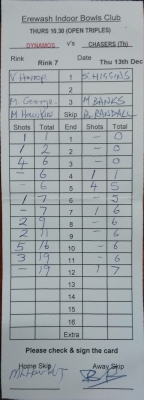 Erewash Indoor Bowls Club
THURS 10.30 (OPEN TRIPLES)
DYNAMOS v's CHASERS (Th)
Rink Rink 7 Date Thu 13th Dec
1 S. HIGGINS
2
M George 3 M BANKS
M Skip RANDALL
Shots Total End Shots Total
1 1 1 - 0
1 2 2 - 0
4 6 3 - 0
- 6 4 1 1
- 6 5 4 5
1 7 6 - 5
- 7 7 1 6
2 9 8 - 6
2 11 9 - 6
5 16 10 - 6
3 19 11 - 6
- 19 12 1 7
13
14
15
16
Extra
Please check & sign the card
Home Skip Away Skip